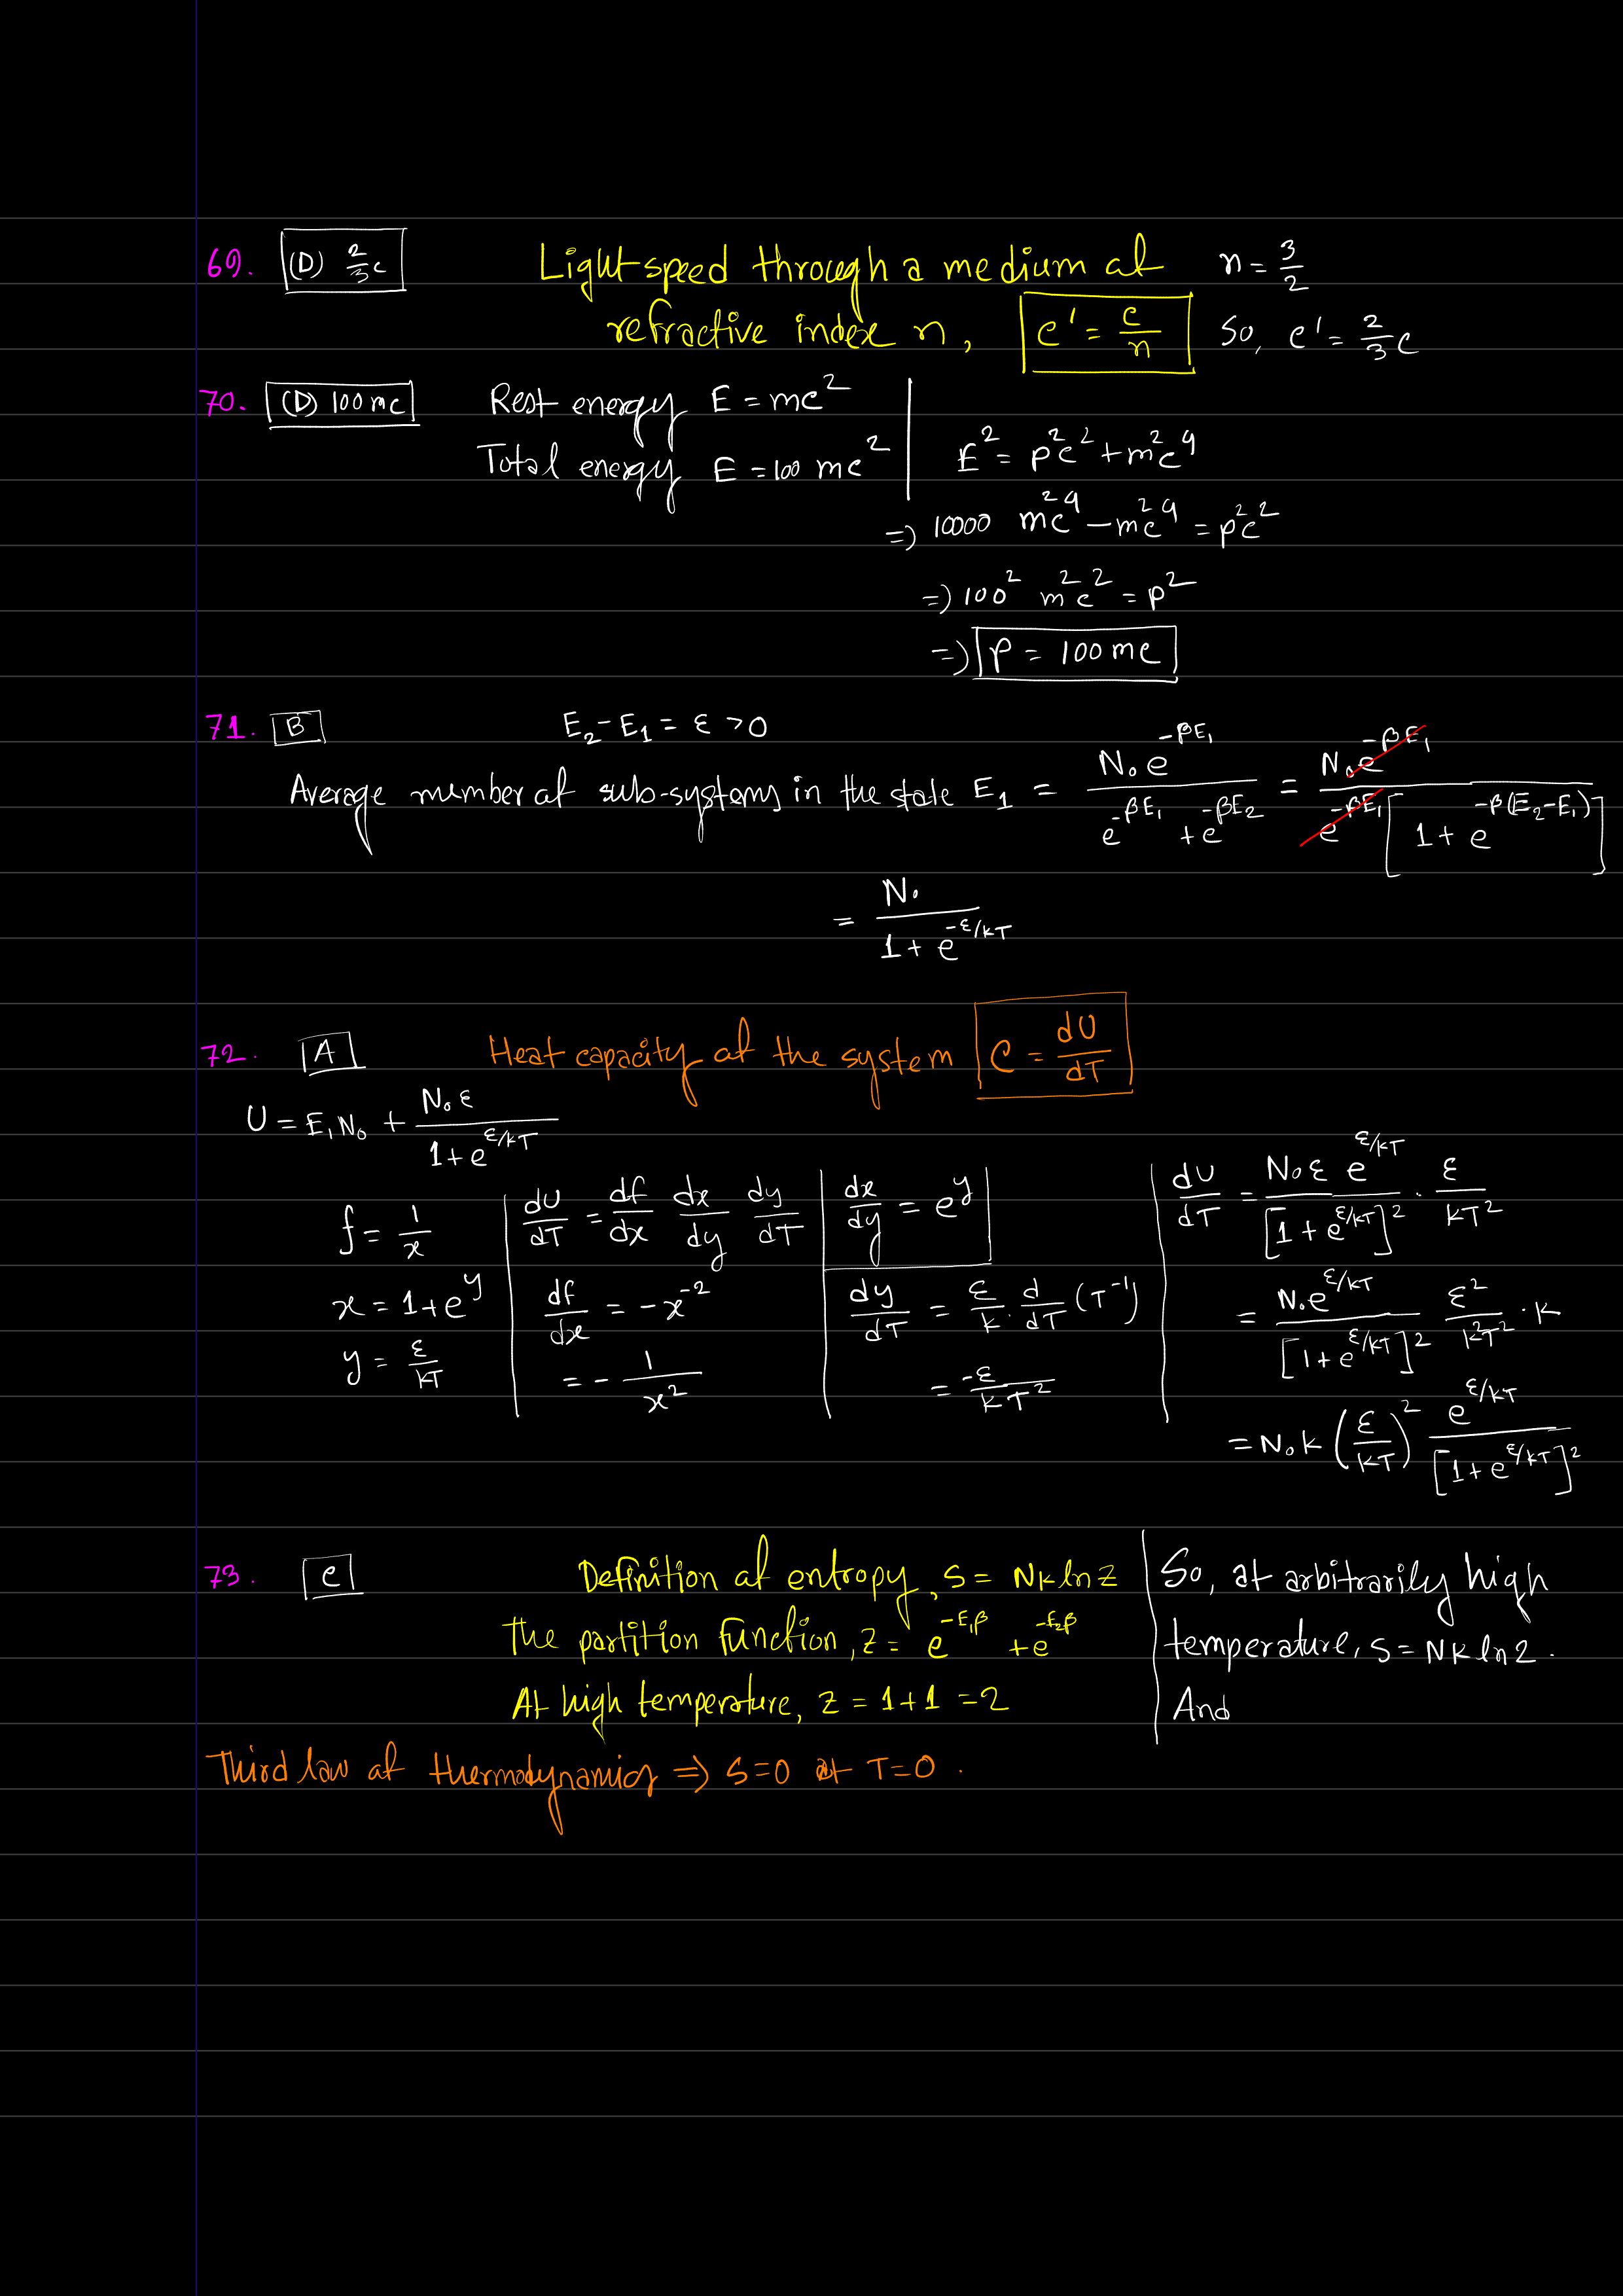 69. (D) 2/3 c Light speed through a medium of n = 3/2
refractive index n, c' = c/n So, c' = 2/3 c
70. (D) 100 mc Rest energy E = mc²
Total energy E = 100 mc²
E² = p²c² + m²c⁴
=> 10000 m²c⁴ – m²c⁴ = p²c²
=> 100² m²c² = p²
=> p = 100 mc
71. B E₂ – E₁ = ε > 0
Average number of sub-systems in the state E₁ = N₀e^(-βE₁) / (e^(-βE₁) + e^(-βE₂)) = N₀e^(-βE₁) / e^(-βE₁)[1 + e^(-β(E₂-E₁))]
= N₀ / (1 + e^(-ε/kT))
72. A Heat capacity of the system C = dU/dT
U = E₁N₀ + N₀ε / (1 + e^(ε/kT))
f = 1/x
x = 1 + e^y
y = ε/kT
dU/dT = df/dx dx/dy dy/dT
df/dx = -x⁻²
= - 1/x²
dx/dy = e^y
dy/dT = ε/k · d/dT (T⁻¹)
= -ε/kT²
dU/dT = N₀ε e^(ε/kT) / [1 + e^(ε/kT)]² · ε/kT²
= N₀e^(ε/kT) / [1 + e^(ε/kT)]² ε²/k²T² · k
= N₀k (ε/kT)² e^(ε/kT) / [1 + e^(ε/kT)]²
73. C Definition of entropy, S = Nk ln Z
The partition function, Z = e^(-E₁β) + e^(-E₂β)
At high temperature, Z = 1 + 1 = 2
So, at arbitrarily high
temperature, S = Nk ln 2.
And
Third law of thermodynamics => S = 0 at T = 0.